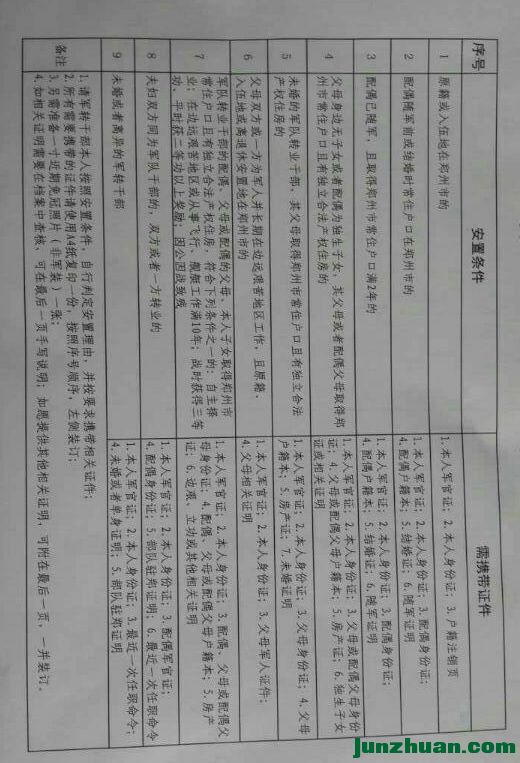 序号 安置条件 需携带证件
1 原籍或入伍地在郑州市的 1. 本人军官证；2. 本人身份证；3. 户籍注销页
2 配偶随军前或结婚时常住户口在郑州市的 1. 本人军官证；2. 本人身份证；3. 配偶身份证；
4. 配偶户籍本；5. 结婚证；6. 随军证明
3 配偶已随军，且取得郑州市常住户口满2年的 1. 本人军官证；2. 本人身份证；3. 配偶身份证；
4. 配偶户籍本；5. 结婚证；6. 随军证明
4 父母身边无子女或者配偶为独生子女，其父母或者配偶父母取得郑
州市常住户口且有独立合法产权住房的
1. 本人军官证；2. 本人身份证；3. 父母或配偶父母身份
证；4. 父母或配偶父母户籍本；5. 房产证；6. 独生子女
证或相关证明
5 未婚的军队转业干部，其父母取得郑州市常住户口且有独立合法
产权住房的
1. 本人军官证；2. 本人身份证；3. 父母身份证；4. 父母
户籍本；5. 房产证；7. 未婚证明
6 父母双方或一方为军人并长期在边远艰苦地区工作，且原籍、
入伍地或离退休安置地在郑州市的
1. 本人军官证；2. 本人身份证；3. 父母军人证件；
4. 父母相关证明
7 军队转业干部的配偶、父母或配偶的父母、本人子女取得郑州市
常住户口且有独立合法产权住房的，符合下列条件之一的：自主择
业；在边远艰苦地区或从事飞行、舰艇工作满10年；战时获得三等
功、平时获二等功以上奖励；因公因战致残
1. 本人军官证；2. 本人身份证；3. 配偶、父母或配偶父
母身份证；4. 配偶、父母或配偶父母户籍本；5. 房产
证；6. 边艰、立功或其他相关证明
8 夫妇双方同为军队干部的，双方或者一方转业的 1. 本人军官证；2. 本人身份证；3. 配偶军官证；
4. 配偶身份证；5. 部队驻郑证明；6. 最近一次任职命令
9 未婚或者离异的军转干部 1. 本人军官证；2. 本人身份证；3. 最近一次任职命令；
4. 未婚或者单身证明；5. 部队驻郑证明
备注
1. 请军转干部本人按照安置条件，自行判定安置理由，并按要求携带相关证件；
2. 所有需要携带的证件请使用A4纸复印一份，按照序号顺序，左侧装订；
3. 另需准备一寸近期免冠照片（非军装）一张；
4. 如相关证明需要在档案中查核，可在最后一页手写说明；如愿提供其他相关证明，可附在最后一页，一并装订。
junzhuan.com